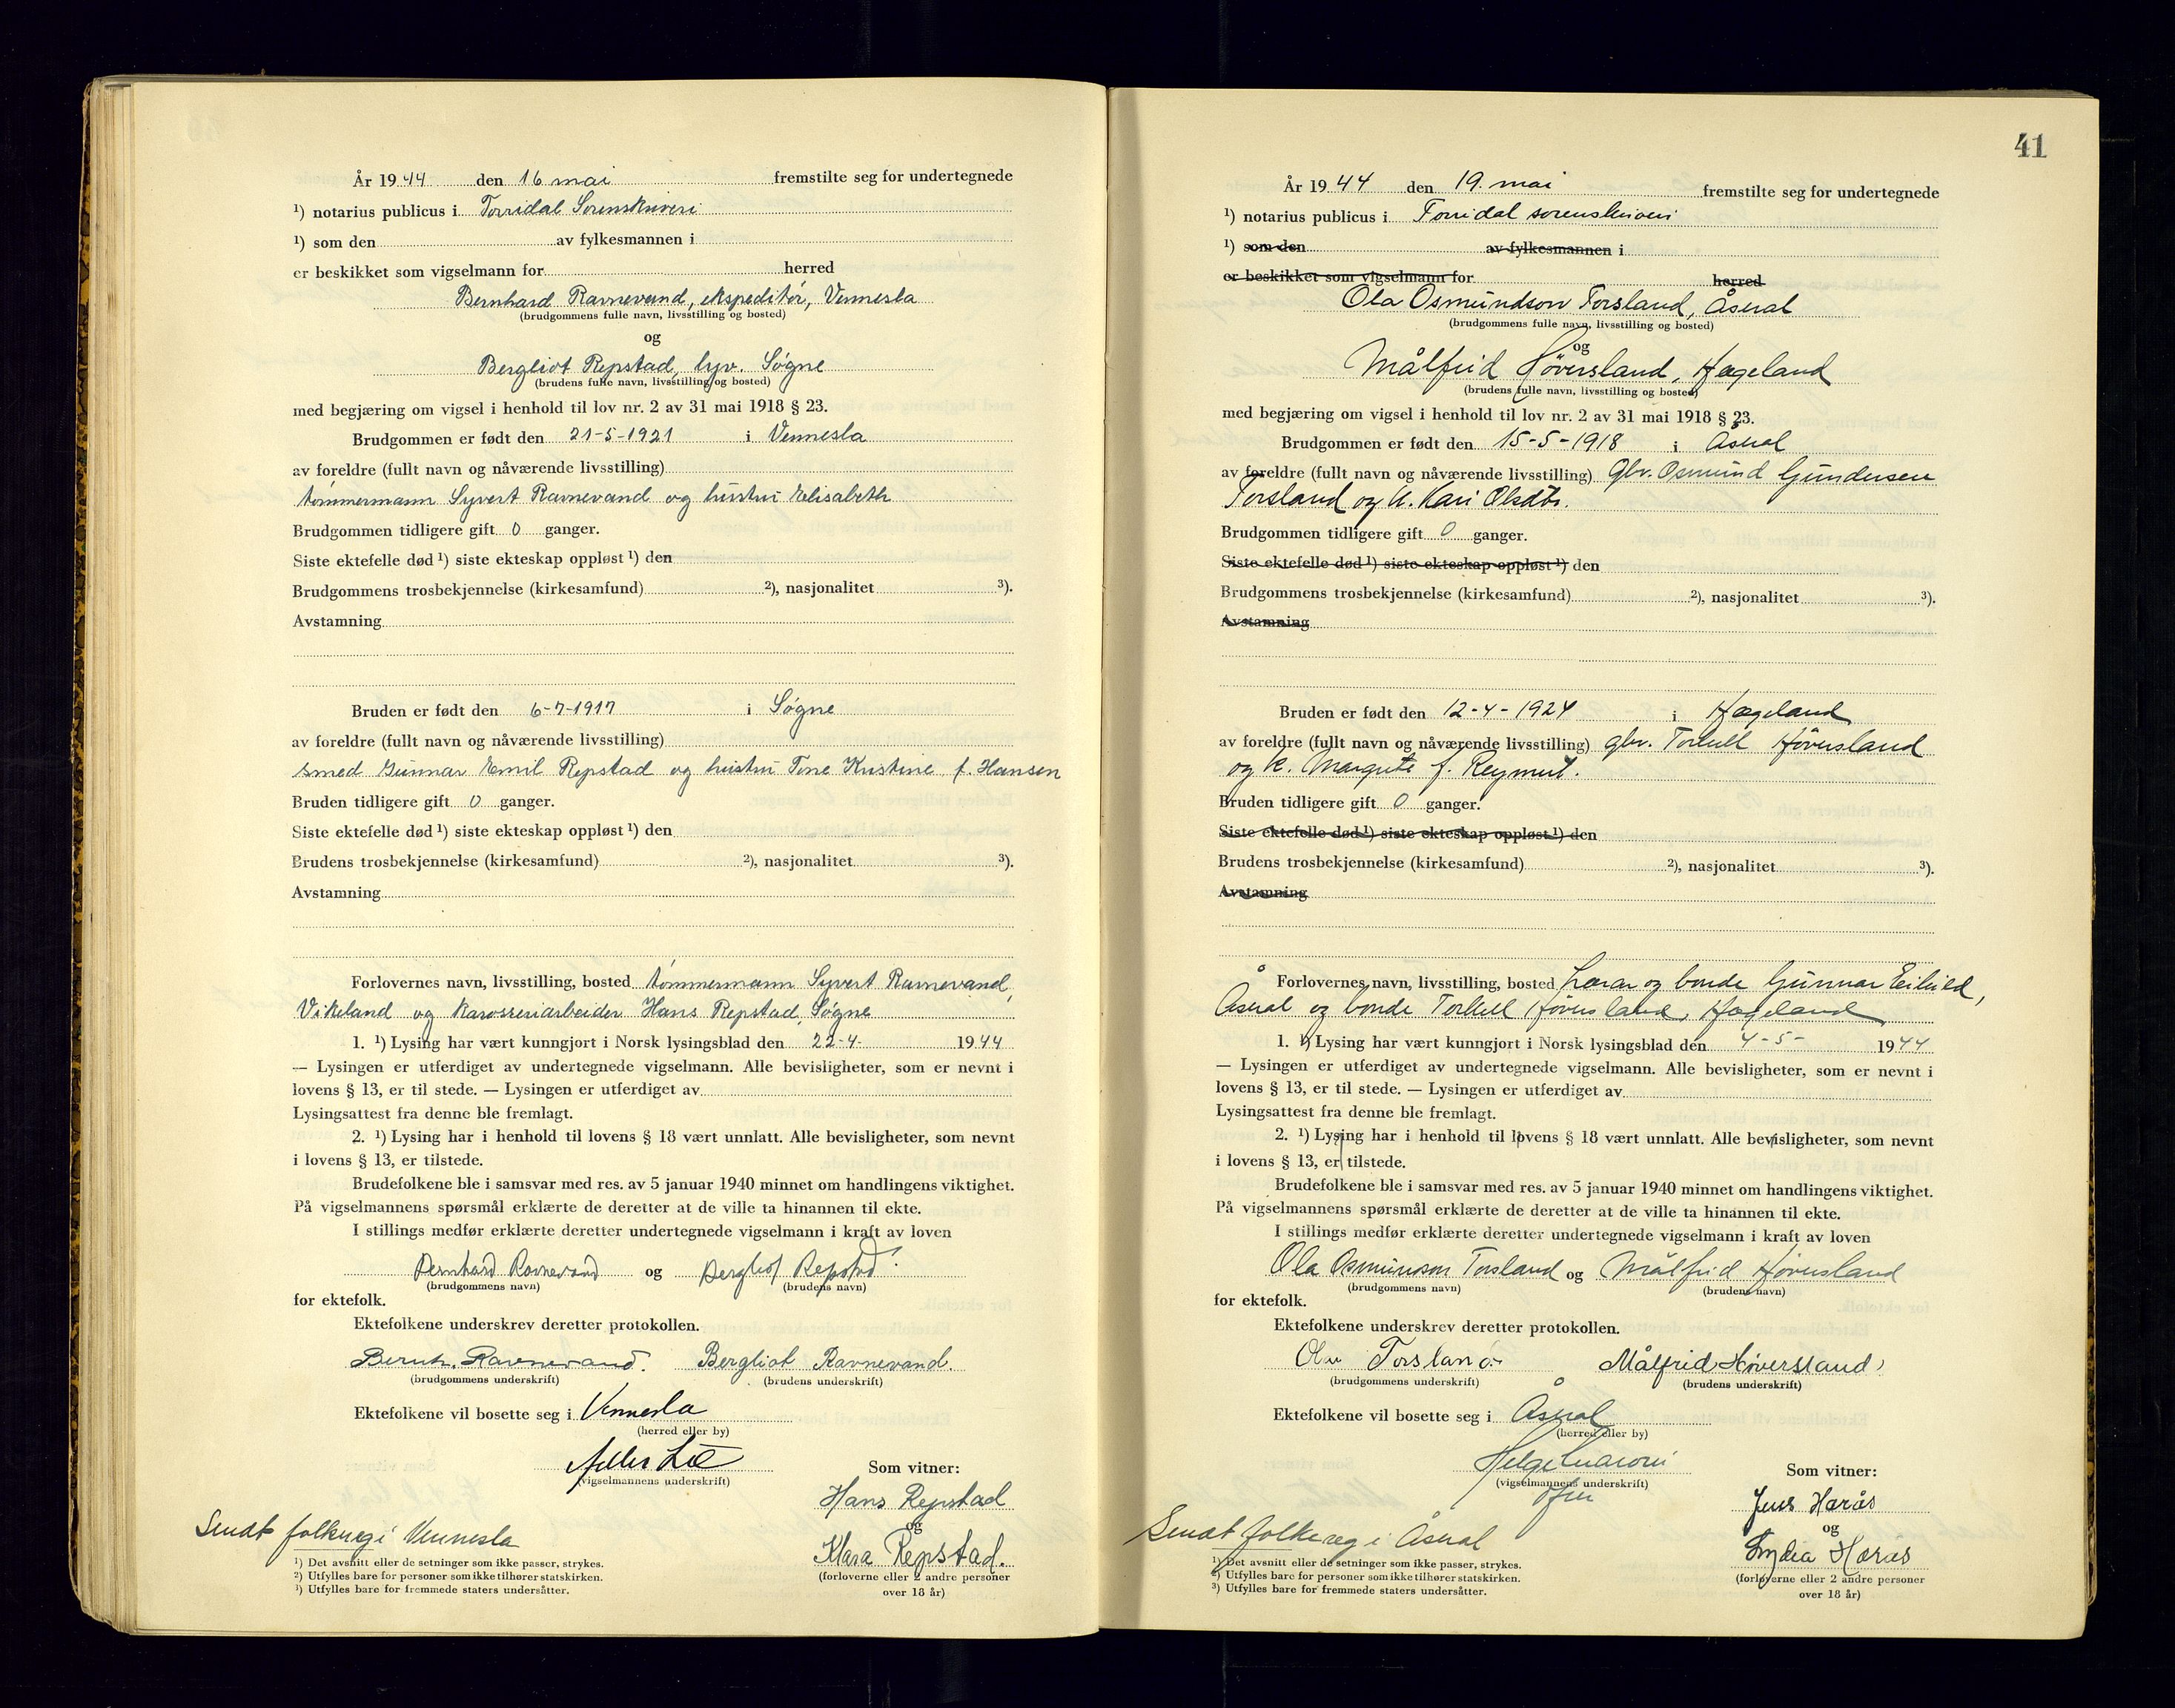 År 1944 den 16 mai fremstilte seg for undertegnede
¹) notarius publicus i Torridal Sorenskriveri
¹) som den av fylkesmannen i
er beskikket som vigselmann for herred
Bernhard Ravnevand, ekspeditör, Vennesla
(brudgommens fulle navn, livsstilling og bosted)
og
Bergliot Repstad, syv. Søgne
(brudens fulle navn, livsstilling og bosted)
med begjæring om vigsel i henhold til lov nr. 2 av 31 mai 1918 § 23.
Brudgommen er født den 21-5-1921 i Vennesla
av foreldre (fullt navn og nåværende livsstilling)
tømmermann Syvert Ravnevand og hustru Elisabeth
Brudgommen tidligere gift 0 ganger.
Siste ektefelle død ¹) siste ekteskap oppløst ¹) den
Brudgommens trosbekjennelse (kirkesamfund) ²), nasjonalitet ³).
Avstamning
Bruden er født den 6-7-1917 i Søgne
av foreldre (fullt navn og nåværende livsstilling)
smed Gunnar Emil Repstad og hustru Tone Kristine f. Hansen
Bruden tidligere gift 0 ganger.
Siste ektefelle død ¹) siste ekteskap oppløst ¹) den
Brudens trosbekjennelse (kirkesamfund) ²), nasjonalitet ³).
Avstamning
Forlovernes navn, livsstilling, bosted tømmermann Syvert Ravnevand,
Vikeland og karosseriarbeider Hans Repstad, Søgne
1. ¹) Lysing har vært kunngjort i Norsk lysingsblad den 22-4- 1944
— Lysingen er utferdiget av undertegnede vigselmann. Alle bevisligheter, som er nevnt i
lovens § 13, er til stede. — Lysingen er utferdiget av
Lysingsattest fra denne ble fremlagt.
2. ¹) Lysing har i henhold til lovens § 18 vært unnlatt. Alle bevisligheter, som nevnt
i lovens § 13, er tilstede.
Brudefolkene ble i samsvar med res. av 5 januar 1940 minnet om handlingens viktighet.
På vigselmannens spørsmål erklærte de deretter at de ville ta hinannen til ekte.
I stillings medfør erklærte deretter undertegnede vigselmann i kraft av loven
Bernhard Ravnevand og Bergliot Repstad
(brudgommens navn) (brudens navn)
for ektefolk.
Ektefolkene underskrev deretter protokollen.
Bernh. Ravnevand. Bergliot Ravnevand.
(brudgommens underskrift) (brudens underskrift)
Ektefolkene vil bosette seg i Vennesla
(herred eller by)
(vigselmannens underskrift)
Som vitner:
Hans Repstad
og
Klara Repstad.
(forloverne eller 2 andre personer
over 18 år)
Sendt folkereg i Vennesla
¹) Det avsnitt eller de setninger som ikke passer, strykes.
²) Utfylles bare for personer som ikke tilhører statskirken.
³) Utfylles bare for fremmede staters undersåtter.
41
År 1944 den 19. mai fremstilte seg for undertegnede
¹) notarius publicus i Torridal sorenskriveri
¹) som den av fylkesmannen i
er beskikket som vigselmann for herred
Ola Osmundson Torsland, Åseral
(brudgommens fulle navn, livsstilling og bosted)
og
Målfrid Høversland, Hægeland
(brudens fulle navn, livsstilling og bosted)
med begjæring om vigsel i henhold til lov nr. 2 av 31 mai 1918 § 23.
Brudgommen er født den 15-5-1918 i Åseral
av foreldre (fullt navn og nåværende livsstilling) Gbr. Osmund Gundersen
Torsland og h. Kari Olsdtr.
Brudgommen tidligere gift 0 ganger.
Siste ektefelle død ¹) siste ekteskap oppløst ¹) den
Brudgommens trosbekjennelse (kirkesamfund) ²), nasjonalitet ³).
Avstamning
Bruden er født den 12-4-1924 i Hægeland
av foreldre (fullt navn og nåværende livsstilling) gbr. Torkell Høversland
og h. Margrete f. Reymert.
Bruden tidligere gift 0 ganger.
Siste ektefelle død ¹) siste ekteskap oppløst ¹) den
Brudens trosbekjennelse (kirkesamfund) ²), nasjonalitet ³).
Avstamning
Forlovernes navn, livsstilling, bosted Lærar og bonde Gunnar
Åseral og bonde Torkell Høversland, Hægeland
1. ¹) Lysing har vært kunngjort i Norsk lysingsblad den 4-5- 1944
— Lysingen er utferdiget av undertegnede vigselmann. Alle bevisligheter, som er nevnt i
lovens § 13, er til stede. — Lysingen er utferdiget av
Lysingsattest fra denne ble fremlagt.
2. ¹) Lysing har i henhold til lovens § 18 vært unnlatt. Alle bevisligheter, som nevnt
i lovens § 13, er tilstede.
Brudefolkene ble i samsvar med res. av 5 januar 1940 minnet om handlingens viktighet.
På vigselmannens spørsmål erklærte de deretter at de ville ta hinannen til ekte.
I stillings medfør erklærte deretter undertegnede vigselmann i kraft av loven
Ola Osmundson Torsland og Målfrid Høversland
(brudgommens navn) (brudens navn)
for ektefolk.
Ektefolkene underskrev deretter protokollen.
Olav Torsland Målfrid Høversland
(brudgommens underskrift) (brudens underskrift)
Ektefolkene vil bosette seg i Åseral
(herred eller by)
Helge
(vigselmannens underskrift)
Som vitner:
Jens Harås
og
Lydia Harås
(forloverne eller 2 andre personer
over 18 år)
Sendt folkereg i Åseral
¹) Det avsnitt eller de setninger som ikke passer, strykes.
²) Utfylles bare for personer som ikke tilhører statskirken.
³) Utfylles bare for fremmede staters undersåtter.